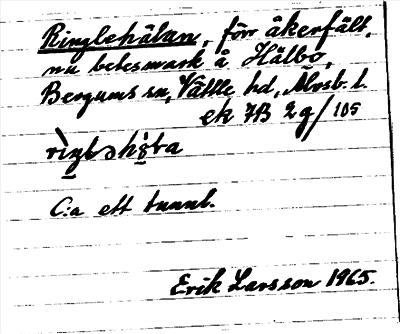 Ringlehålan, förr åkerfält,
nu betesmark å Hålbo,
Bergums sn, Vättle hd, Älvsb. l.
ek 7B 2g/105
C:a ett tunnl.
Erik Larsson 1965.